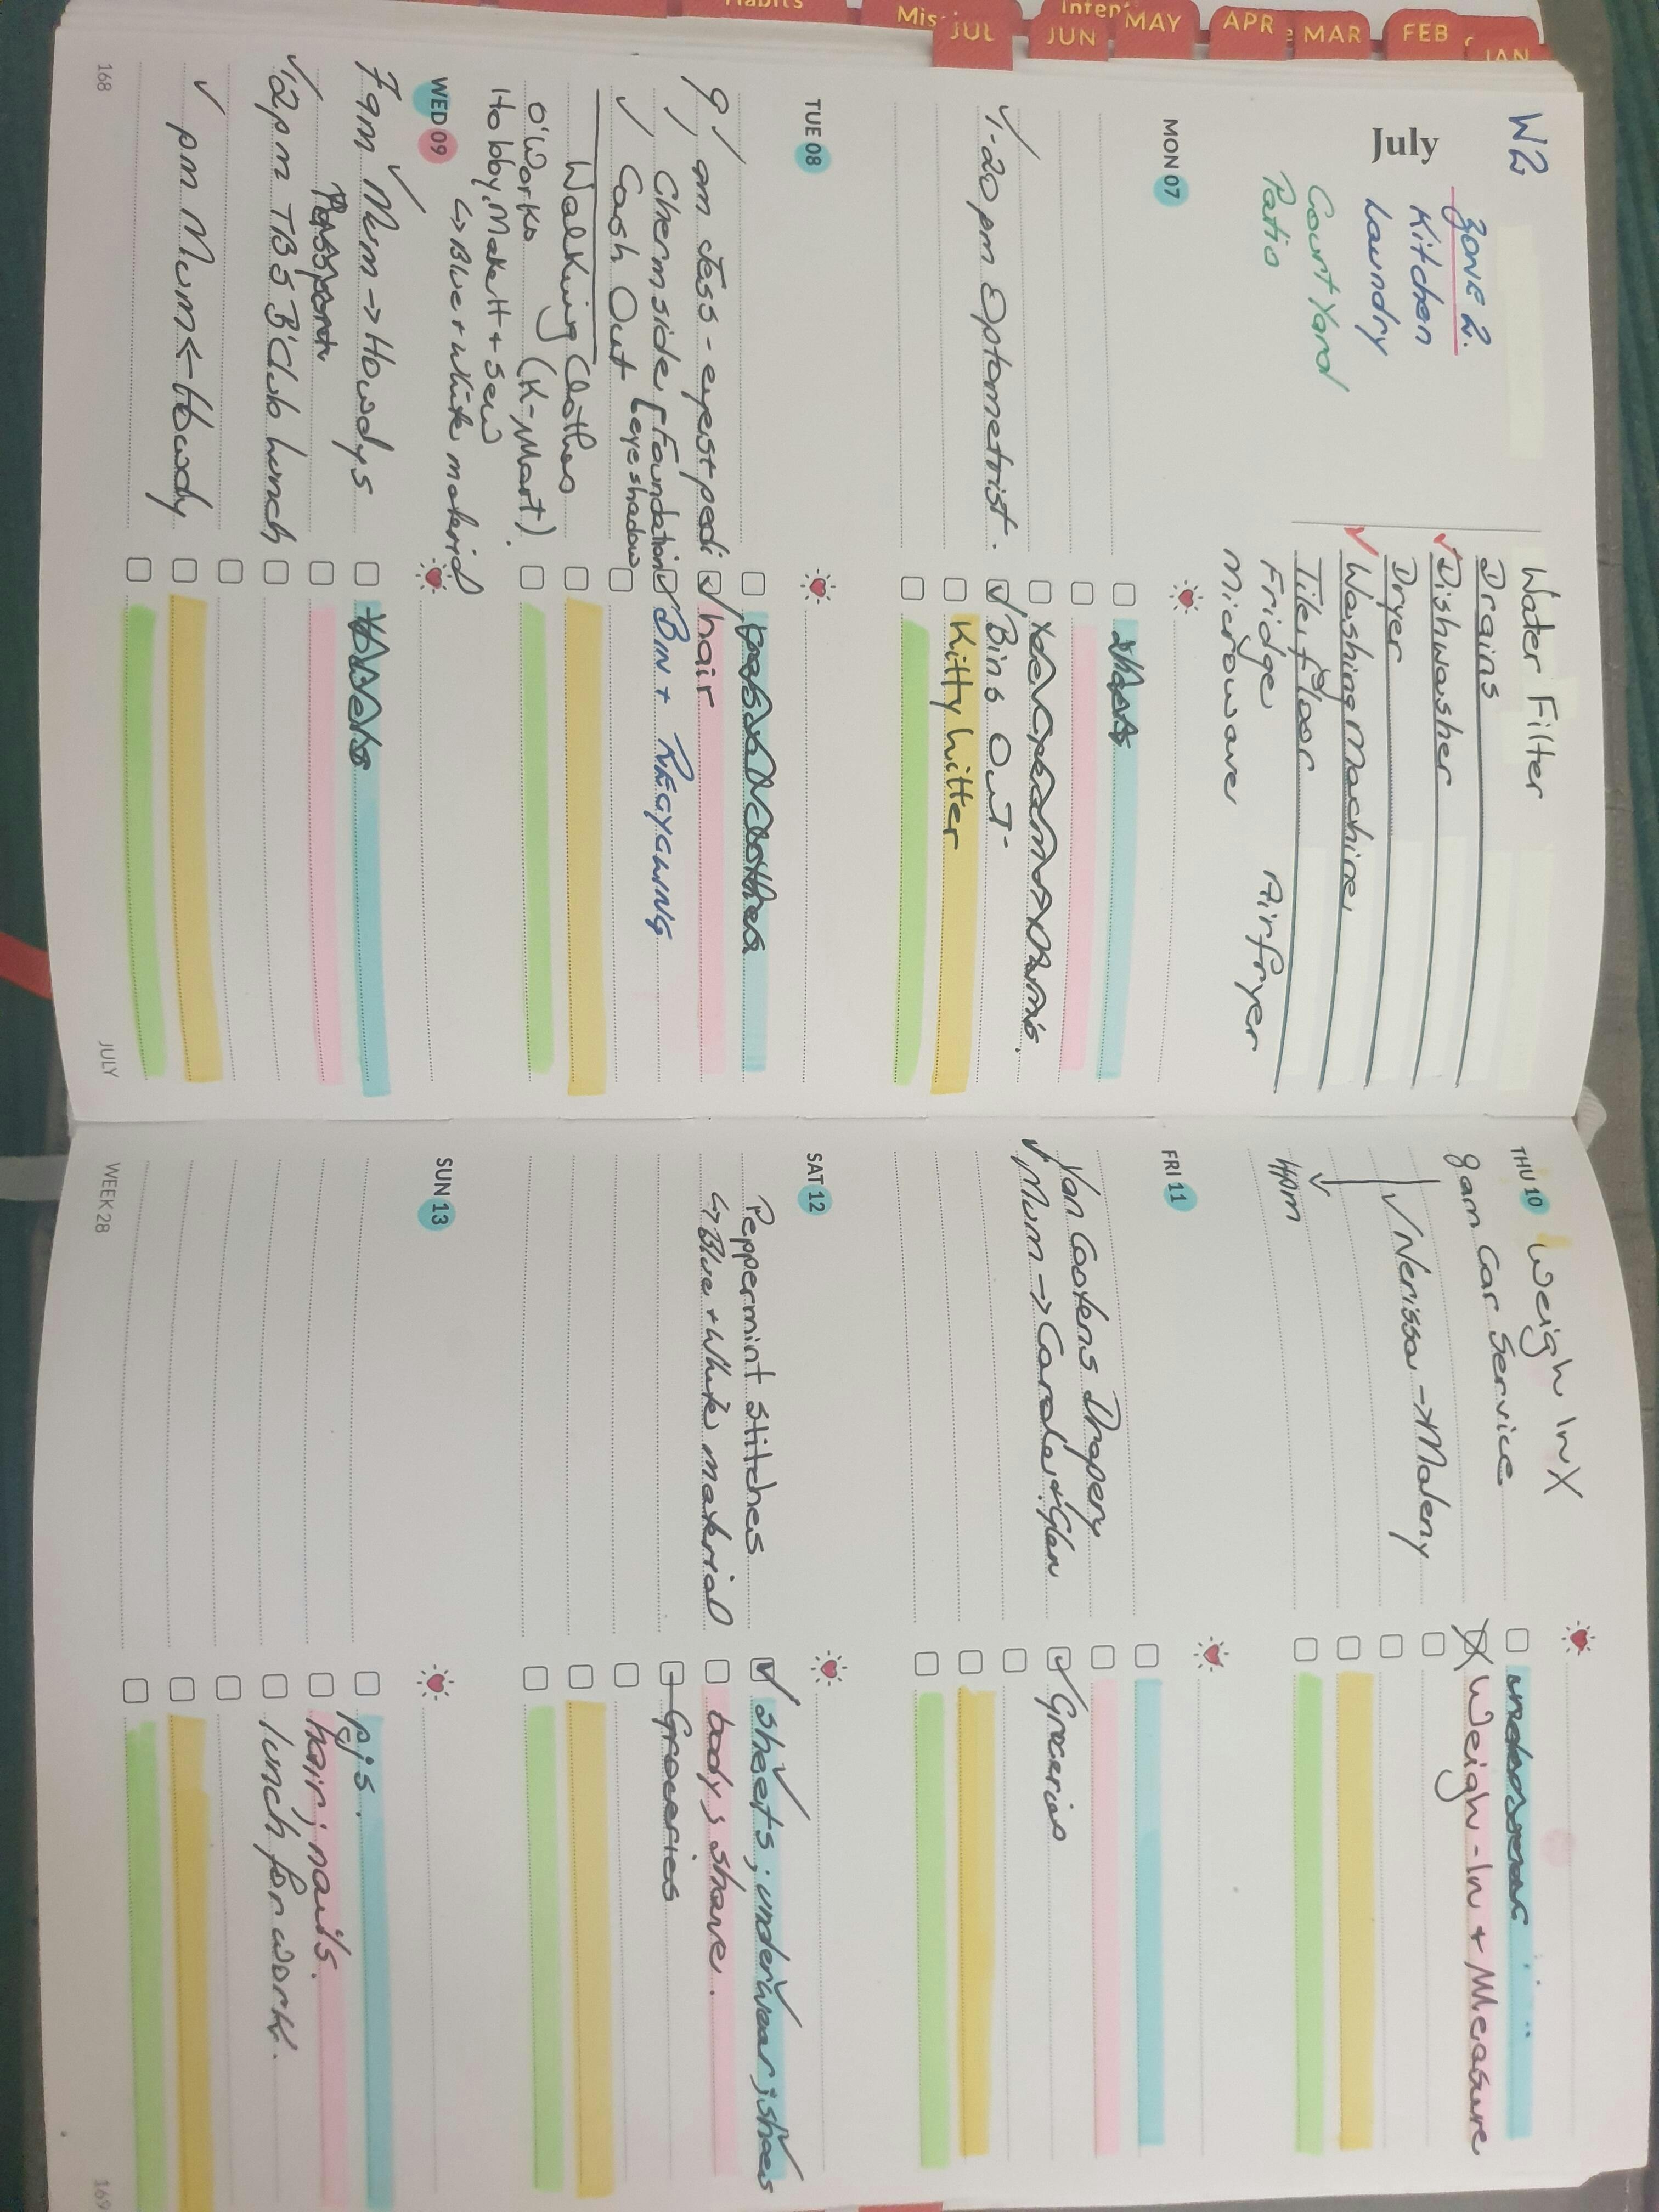 Habits
Mis
Inten
JUL
JUN
MAY
APR
MAR
FEB
JAN
W2
July
ZONE 2.
Kitchen
Laundry
Court Yard
Patio
Water Filter
Drains
Dishwasher
Dryer
Washing Machine
Tile floor
Fridge
Microwave
Airfryer
MON 07
1-20pm Optometrist.
Bins Out
Kitty Litter
TUE 08
9 am Jess - pedi
Chermside [Foundation
Cash Out [eyeshadow
Walking Clothes
O'Works (K-Mart).
Hobby, Make It + Sew
↳ Blue + White material
hair
BIN + RECYCLING
WED 09
7am Mum → Howdys
12pm TBS B'Club lunch
pm Mum ← Howdy
towels
168
JULY
THU 10
Weigh In X
9am Car Service
Nerissa → Maleny
↓
4pm
underwear
Weigh-In + Measure
FRI 11
Van Cootens Drapery
Mum → Carole + Glen
Groceries
SAT 12
Peppermint Stitches
↳ Blue + White material
sheets; underwear; shoes
body; shave.
Groceries
SUN 13
pj's.
hair; nails.
lunch for work.
WEEK 28
169